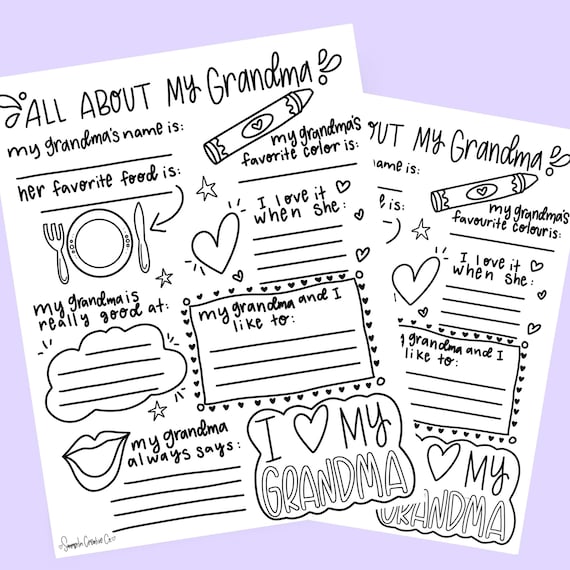 ALL ABOUT MY Grandma
my grandma's name is:
my grandma's
favorite color is:
her favorite food is:
I love it
when she:
my grandma is
really good at:
my grandma and I
like to:
my grandma
always says:
I MY
GRANDMA
OUT MY Grandma
name is:
is:
my grandma's
favourite colour is:
I love it
when she:
grandma and I
like to:
MY
GRANDMA